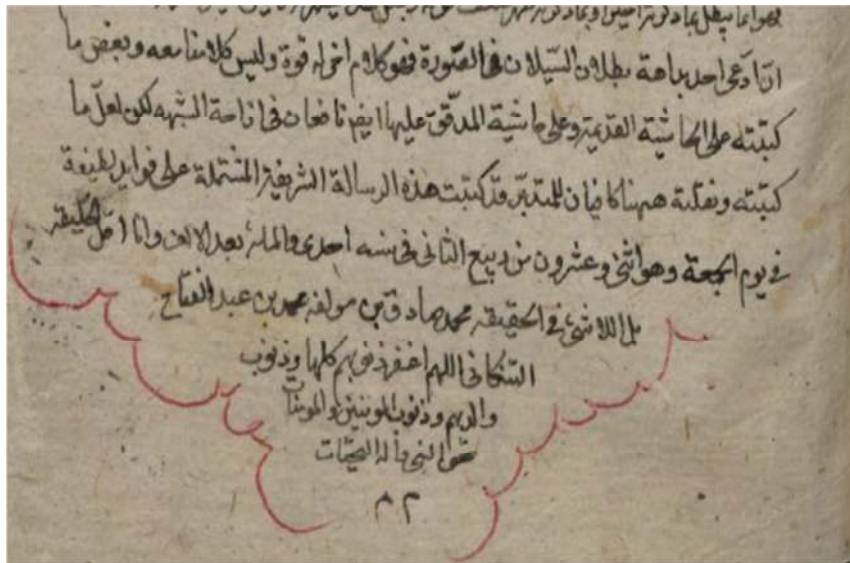 ادّعى احد بداهة بطلان السيلان فى الصورة فهو كلام اخر له قوة وليس كلامنا معه وبعض ما
كتبته على الحاشية القديمة وعلى حاشية المدقق عليها ايضا نافعان فى ازاحة الشبهه لكن لعلّ ما
كتبته ونقلته ههنا كافيان للمتدبّر قد كتبت هذه الرسالة الشريفة المشتملة على فوايد لطيفة
فى يوم الجمعة وهو اثنى وعشرون من ربيع الثانى فى سنه احدى والمائة بعد الالف وانا اقل الخليقه
بل اللاشئ فى الحقيقه محمد صادق بن مولفه محمد بن عبد الفتاح
التنكابنى اللهم اغفر ذنوبهم كلها وذنوب
والديهم وذنوب المومنين والمومنات
بحق النبى واله
م م